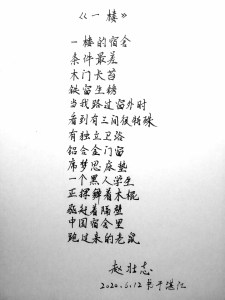 《一楼》
一楼的宿舍
条件最差
木门长苔
铁窗生锈
当我路过窗外时
看到有三间很特殊
有独立卫浴
铝合金门窗
席梦思床垫
一个黑人学生
正挥舞着木棍
驱赶着隔壁
中国宿舍里
跑过来的老鼠
赵壮志
2020.6.12 于湛江